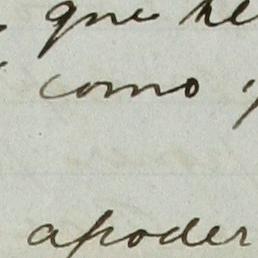 que he
como
apoder